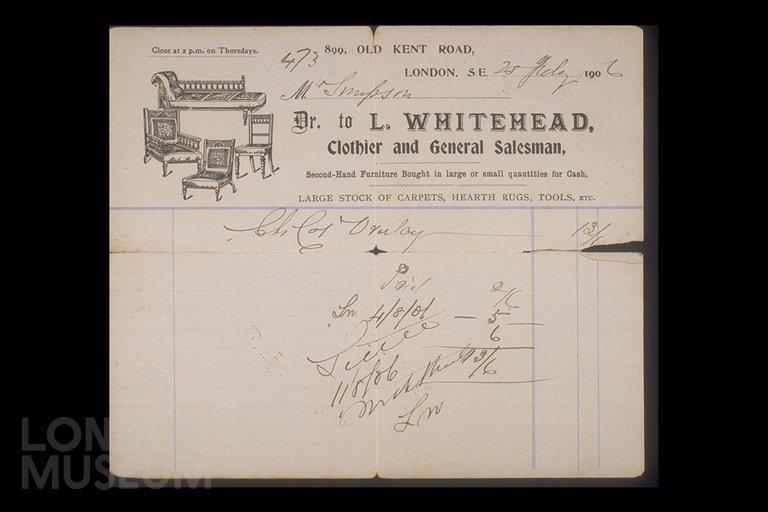 Close at 2 p.m. on Thursdays.
473
899, OLD KENT ROAD,
LONDON. S.E. 28 July 1906
Mr Simpson
Dr. to L. WHITEHEAD,
Clothier and General Salesman,
Second-Hand Furniture Bought in large or small quantities for Cash.
LARGE STOCK OF CARPETS, HEARTH RUGS, TOOLS, ETC.
13/6
Paid
2/6
Lw 4/8/06 — 5
6
11/8/06
13/6
Lw
LONDON
MUSEUM